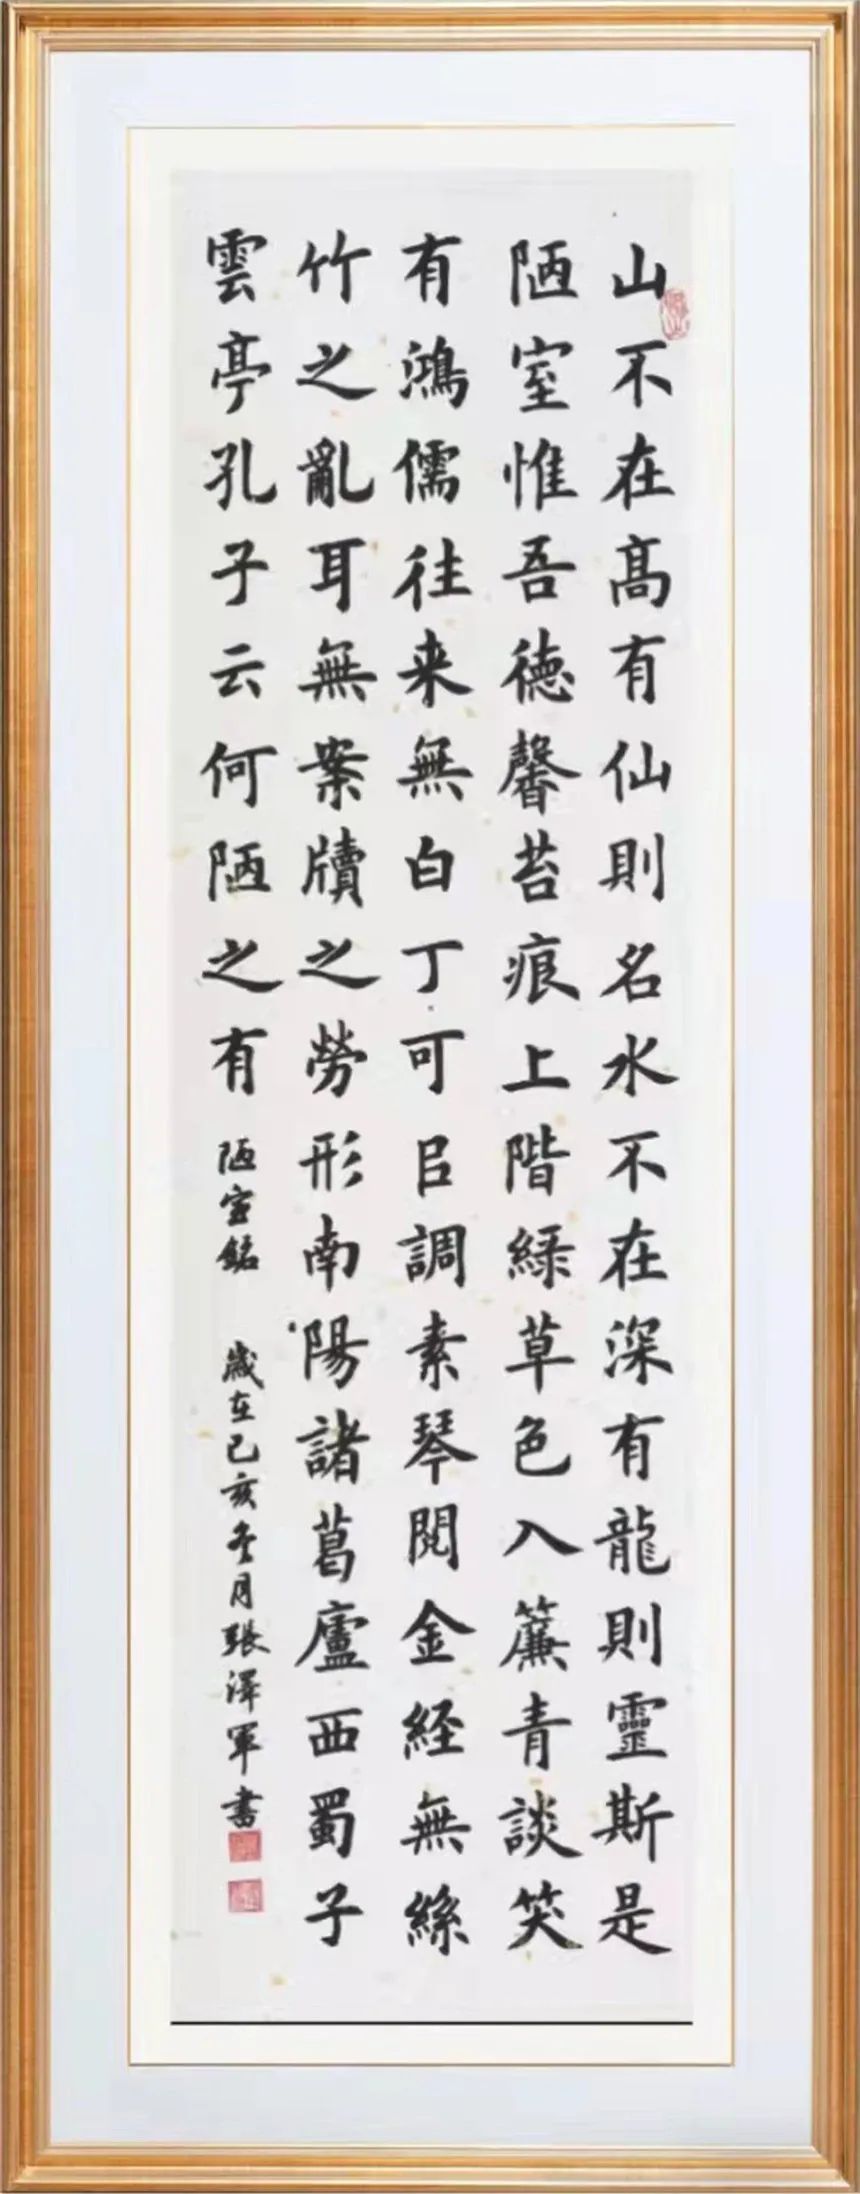 山不在高有仙則名水不在深有龍則靈斯是
陋室惟吾徳馨苔痕上階緑草色入簾青談笑
有鴻儒往来無白丁可㠯調素琴閱金経無絲
竹之亂耳無案牘之勞形南陽諸葛廬西蜀子
雲亭孔子云何陋之有 陋室銘 歲在己亥冬月張澤軍書